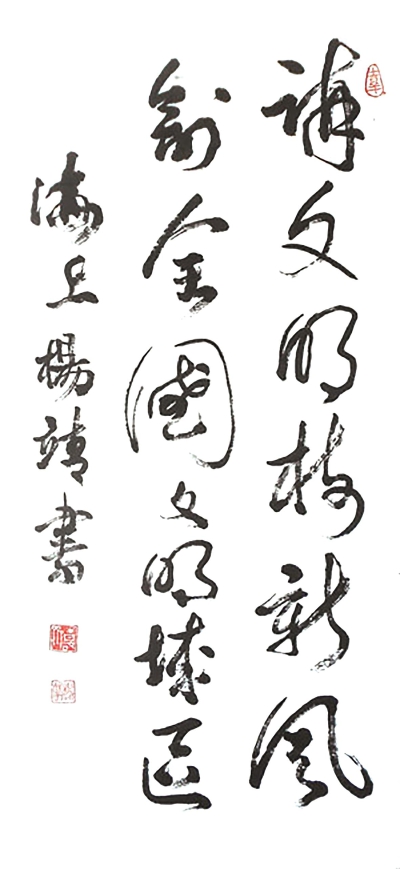 講文明樹新風
創全國文明城區
海上楊靖書